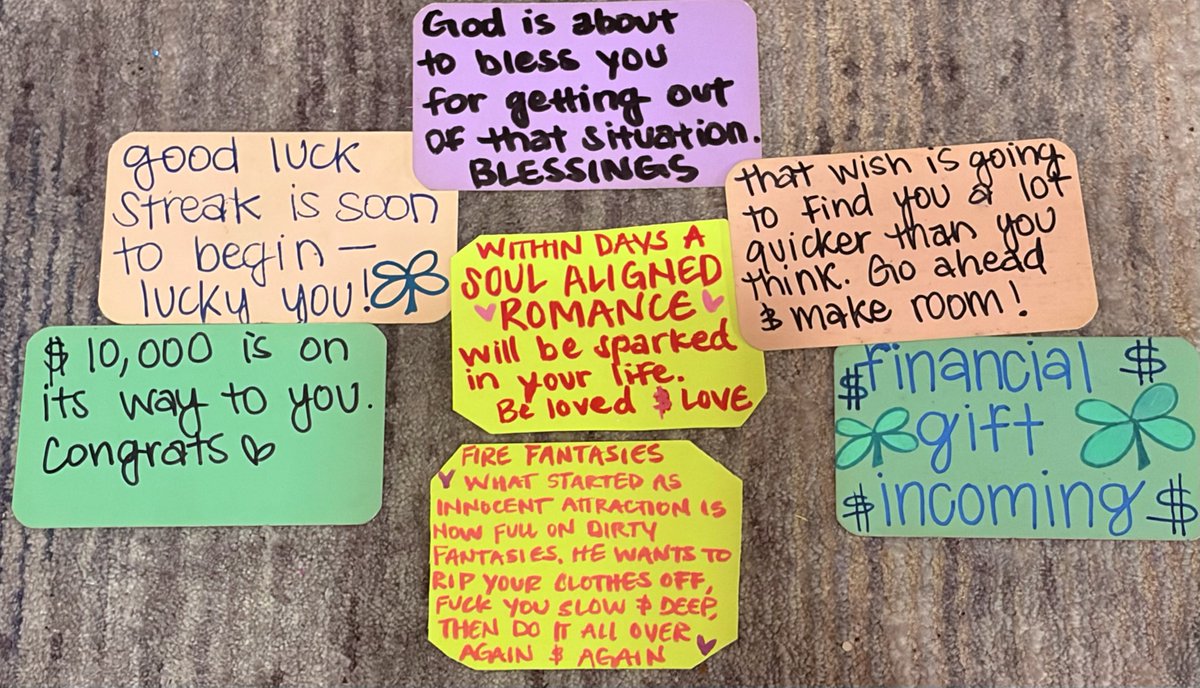 God is about
to bless you
for getting out
of that situation.
BLESSINGS
good luck
streak is soon
to begin —
lucky you!
WITHIN DAYS A
SOUL ALIGNED
ROMANCE
will be sparked
in your life.
Be loved $ LOVE
that wish is going
to find you a lot
quicker than you
think. Go ahead
$ make room!
$ 10,000 is on
its way to you.
Congrats
$ financial $
gift
$ incoming $
FIRE FANTASIES
WHAT STARTED AS
INNOCENT ATTRACTION IS
NOW FULL ON DIRTY
FANTASIES. HE WANTS TO
RIP YOUR CLOTHES OFF,
FUCK YOU SLOW $ DEEP,
THEN DO IT ALL OVER
AGAIN $ AGAIN